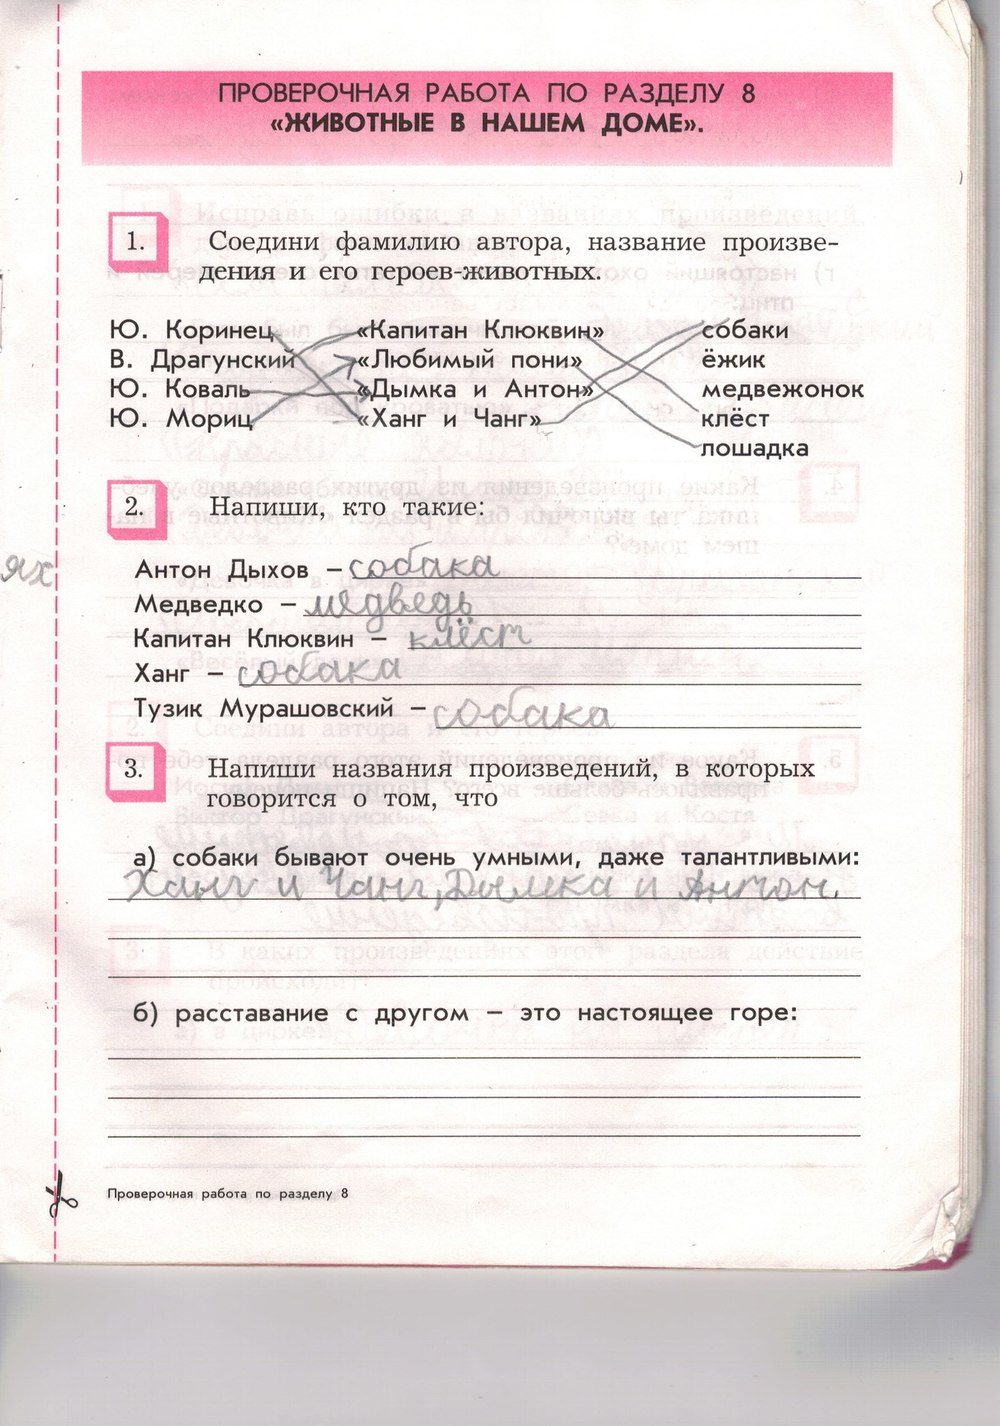 ПРОВЕРОЧНАЯ РАБОТА ПО РАЗДЕЛУ 8
«ЖИВОТНЫЕ В НАШЕМ ДОМЕ».
1. Соедини фамилию автора, название произве-
дения и его героев-животных.
Ю. Коринец «Капитан Клюквин» собаки
В. Драгунский «Любимый пони» ёжик
Ю. Коваль «Дымка и Антон» медвежонок
Ю. Мориц «Ханг и Чанг» клёст
лошадка
2. Напиши, кто такие:
ях
Антон Дыхов – собака
Медведко – медведь
Капитан Клюквин – клёст
Ханг – собака
Тузик Мурашовский – собака
3. Напиши названия произведений, в которых
говорится о том, что
а) собаки бывают очень умными, даже талантливыми:
Ханг и Чанг, Дымка и Антон.
б) расставание с другом – это настоящее горе:
Проверочная работа по разделу 8